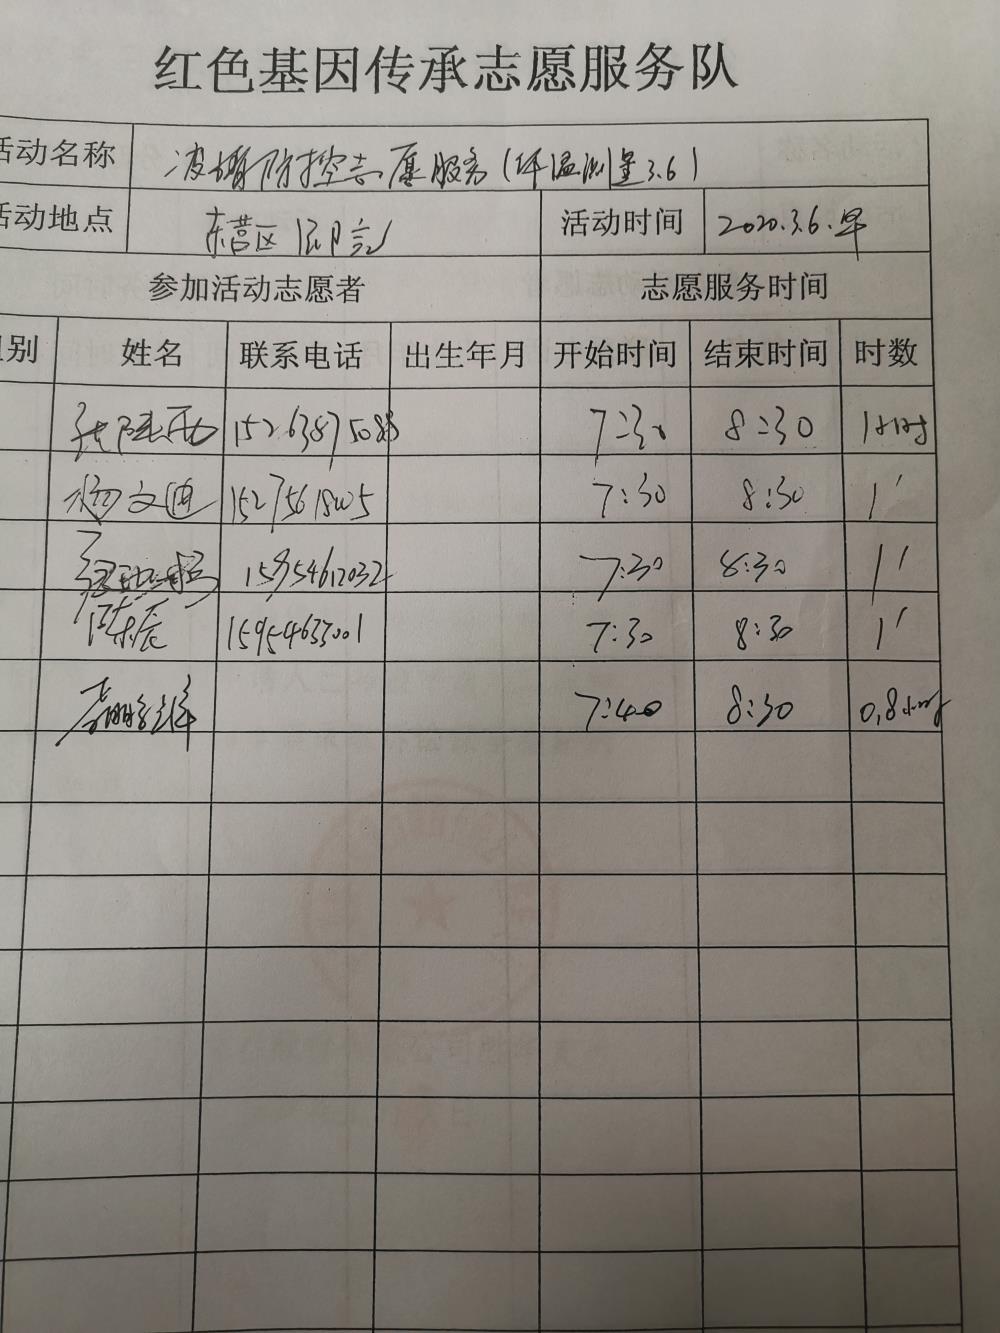 红色基因传承志愿服务队
活动名称 疫情防控志愿服务(体温测量3.6)
活动地点 东营区 活动时间 2020.3.6.早
参加活动志愿者 志愿服务时间
组别 姓名 联系电话 出生年月 开始时间 结束时间 时数
7:30 8:30 1小时
杨文迪 15275618005 7:30 8:30 1'
15954612032 7:30 8:30 1'
陈辰 15954633001 7:30 8:30 1'
7:40 8:30 0.8小时